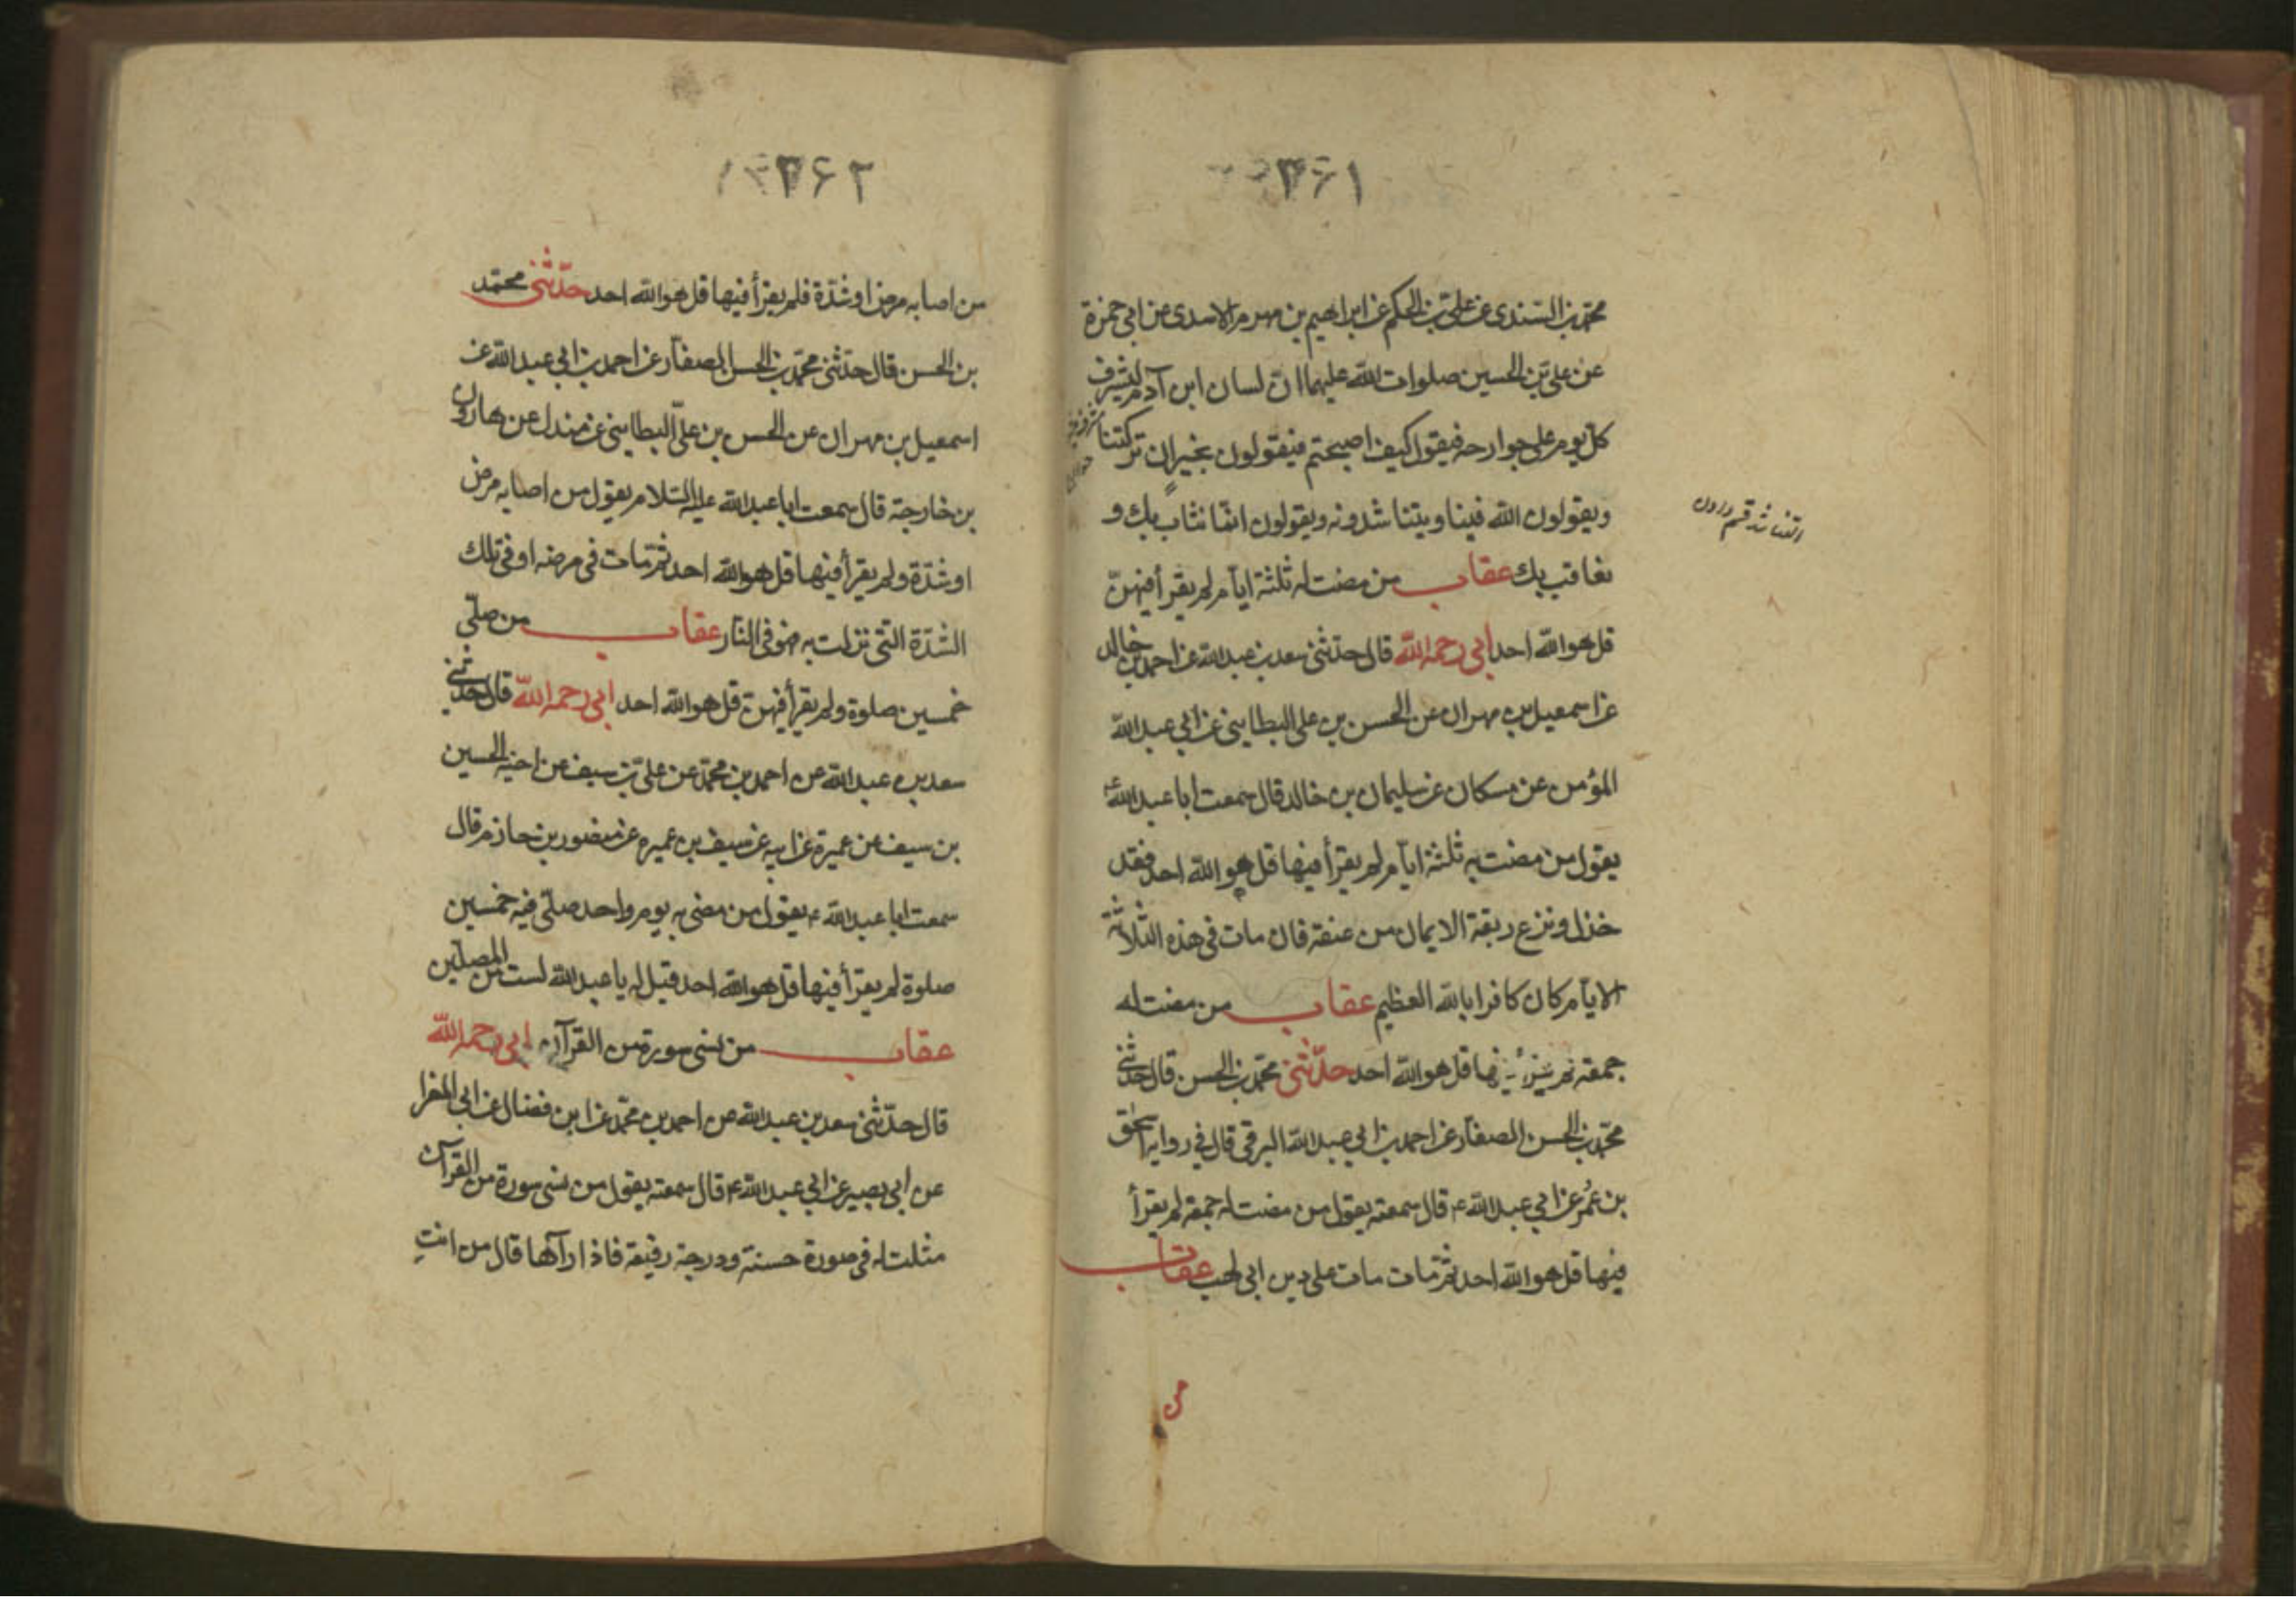 ۳۶۱
محمد بن السندى عن على بن الحكم عن ابراهيم بن مهرم الاسدى عن ابى حمزة
عن على بن الحسين صلوات الله عليهما ان لسان ابن آدم ليشرف
كل يوم على جوارحه فيقول كيف اصبحتم فيقولون بخير ان تركتنا
ويقولون الله فينا ويتناشدونه ويقولون انما نثاب بك و
نعاقب بك عقاب من مضت له ثلثة ايام لم يقرأ فيهنّ
قل هو الله احد ابى رحمه الله قال حدثنى سعد بن عبدالله عن احمد بن خالد
عن اسمعيل بن مهران عن الحسن بن على البطاينى عن ابى عبدالله
المؤمن عن مسكان عن سليمان بن خالد قال سمعت ابا عبدالله ع
يقول من مضت به ثلثة ايام لم يقرأ فيها قل هو الله احد فقد
خذل ونزع ربقة الايمان من عنقه فان مات فى هذه الثلاثة
الايام كان كافرا بالله العظيم عقاب من مضت له
جمعة لم يقرأ فيها قل هو الله احد حدّثنى محمد بن الحسن قال حدثنى
محمد بن الحسن الصفار عن احمد بن ابى عبدالله البرقى قال فى رواية اسحق
بن عمر عن ابى عبدالله ع قال سمعته يقول من مضت له جمعة لم يقرأ
فيها قل هو الله احد ثم مات مات على دين ابى لهب عقاب
من
التناشد قسم دادن
۳۶۲
من اصابه مرض او شدّة فلم يقرأ فيها قل هو الله احد حدّثنى محمّد
بن الحسن قال حدّثنى محمّد بن الحسن الصفار عن احمد بن ابى عبدالله عن
اسمعيل بن مهران عن الحسن بن علىّ البطاينى عن مندل عن هارون
بن خارجة قال سمعت ابا عبدالله عليه السلام يقول من اصابه مرض
او شدّة ولم يقرأ فيها قل هو الله احد ثم مات فى مرضه او فى تلك
الشدّة التى نزلت به فهو فى النار عقاب من صلّى
خمسين صلوة ولم يقرأ فيهن قل هو الله احد ابى رحمه الله قال حدثنى
سعد بن عبدالله عن احمد بن محمد عن على بن سيف عن اخيه الحسين
بن سيف عن عميرة عن ابيه عن سيف بن عميره عن منصور بن حازم قال
سمعت ابا عبدالله ع يقول من مضى به يوم واحد صلّى فيه خمسين
صلوة لم يقرأ فيها قل هو الله احد قيل له يا عبدالله لست من المصلّين
عقاب من نسى سورة من القرآن ابى رحمه الله
قال حدّثنى سعد بن عبدالله عن احمد بن محمّد عن ابن فضال عن ابى المغرا
عن ابى بصير عن ابى عبدالله ع قال سمعته يقول من نسى سورة من القرآن
مثلت له فى صورة حسنة ودرجة رفيعة فاذا رآها قال من انتِ